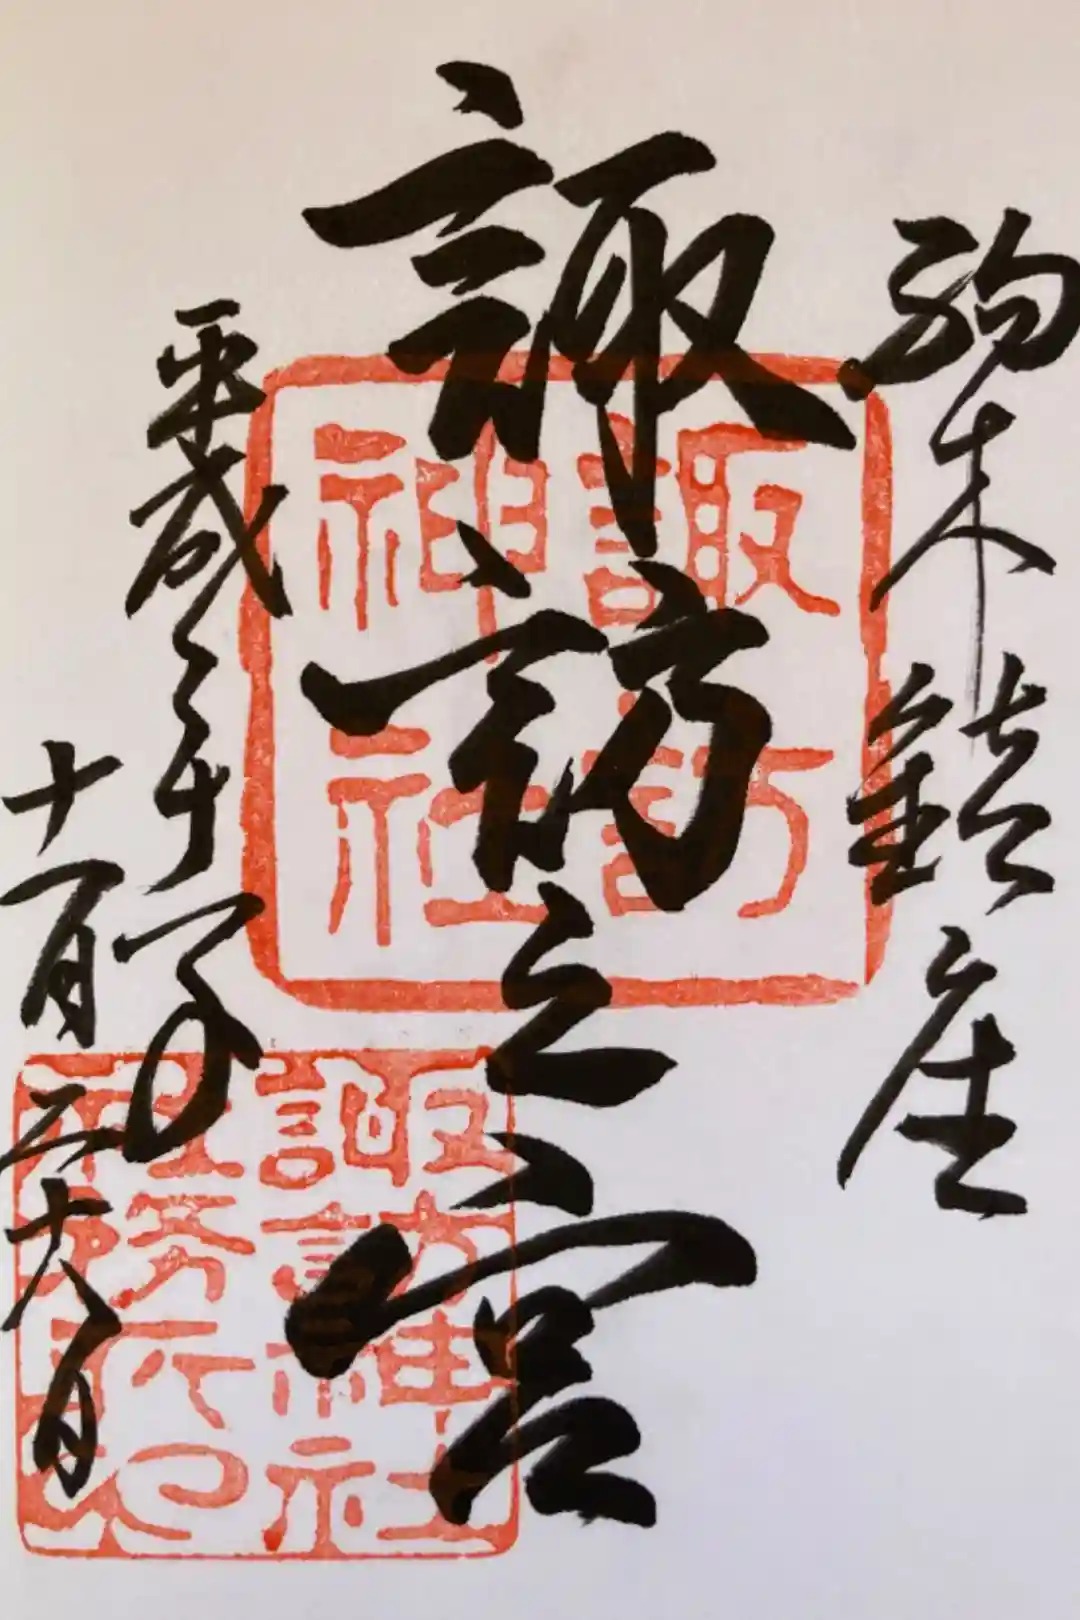 駒木鎮座
諏訪之宮
平成年
十月二十八日
諏訪
神社
諏訪神社
社務所印